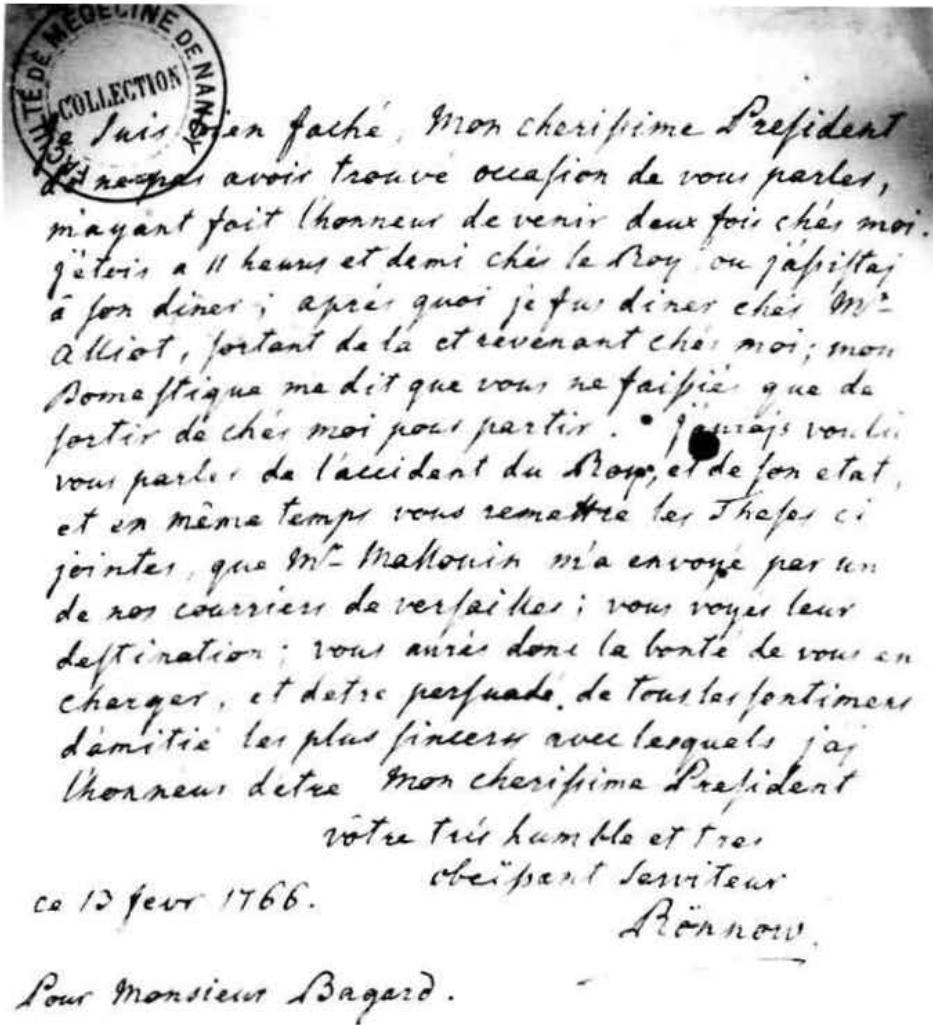 FACULTÉ DE MÉDECINE DE NANCY
COLLECTION
Je suis bien faché, Mon cherissime President
de ne pas avoir trouvé occasion de vous parler,
m'ayant fait l'honneur de venir deux fois chés moi.
j'etois a 11 heurs et demi chés le Roy ou j'assistaj
â son diner; aprés quoi je fus diner chés Mr
Alliot, sortant de la et revenant chés moi; mon
Domestique me dit que vous ne faissiés que de
sortir de chés moi pour partir. j'aurajs voulu
vous parler de l'accident du Roy, et de son etat,
et en même temps vous remettre les Theses ci
jointes, que Mr Mallouin m'a envoyé par un
de nos courriers de versailles; vous voyés leur
destination; vous aurés donc la bonté de vous en
charger, et detre persuadé de tous les sentimens
d'amitié les plus sinceres avec lesquels j'aj
l'honneur detre Mon cherissime President
vôtre trés humble et tres
obeïssant Serviteur
ce 13 fevr 1766.
Rönnow.
Pour Monsieur Bagard.